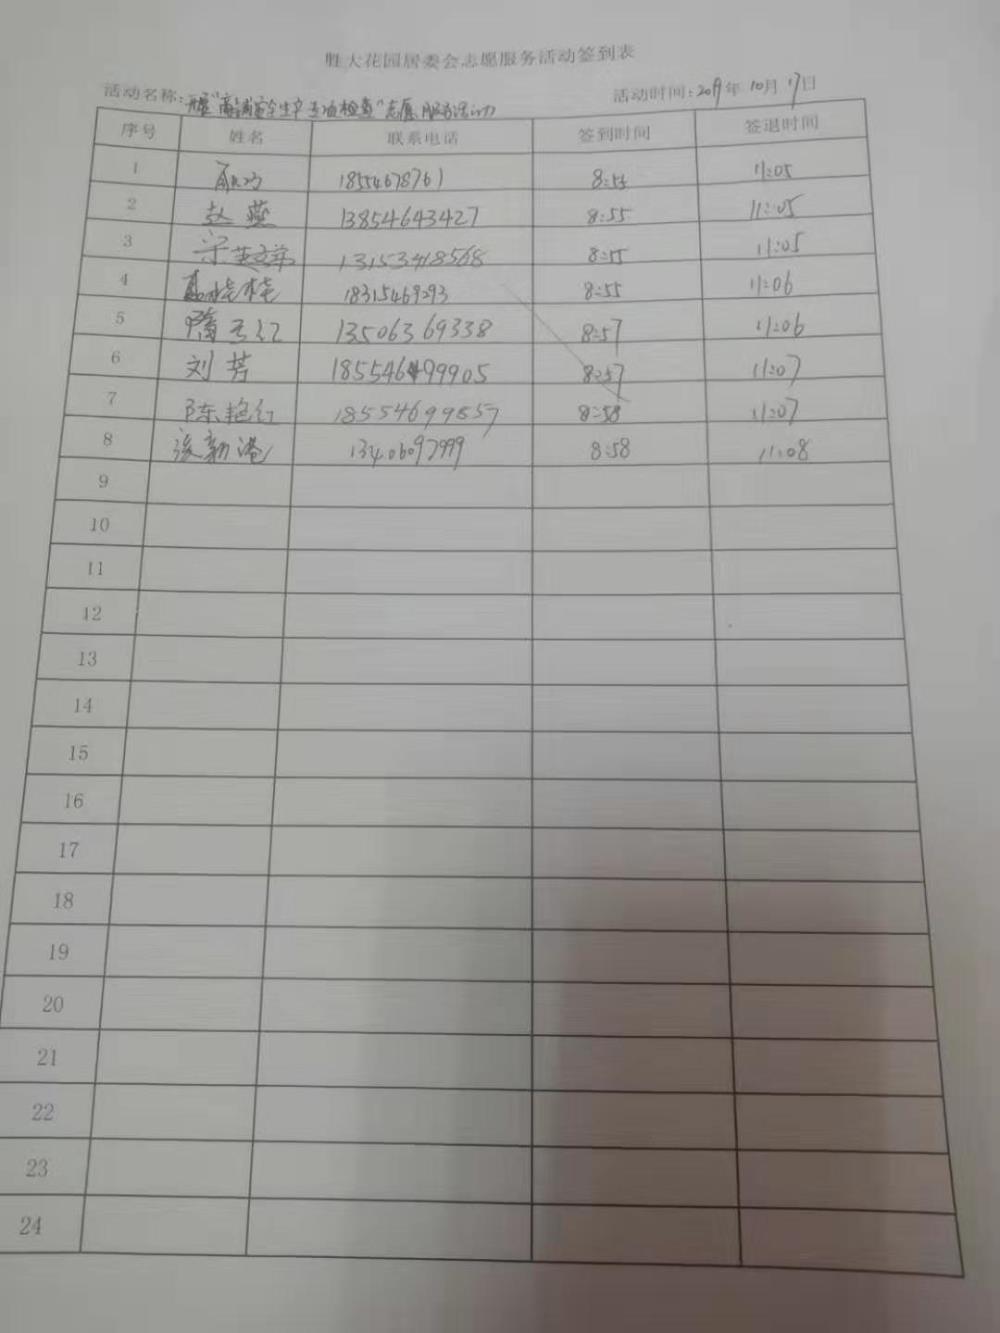 胜大花园居委会志愿服务活动签到表
活动名称: 开展"商铺安全生产专项检查"志愿服务活动 活动时间: 2019年10月17日
序号 姓名 联系电话 签到时间 签退时间
1 18554678761 11:05
2 赵燕 13854643427 8:55 11:05
3 13153418568 8:55 11:05
4 18315469293 8:55 11:06
5 隋玉红 13506369338 8:57 11:06
6 刘芳 18554699905 8:57 11:07
7 陈艳红 18554699857 8:58 11:07
8 13406097999 8:58 11:08
9
10
11
12
13
14
15
16
17
18
19
20
21
22
23
24